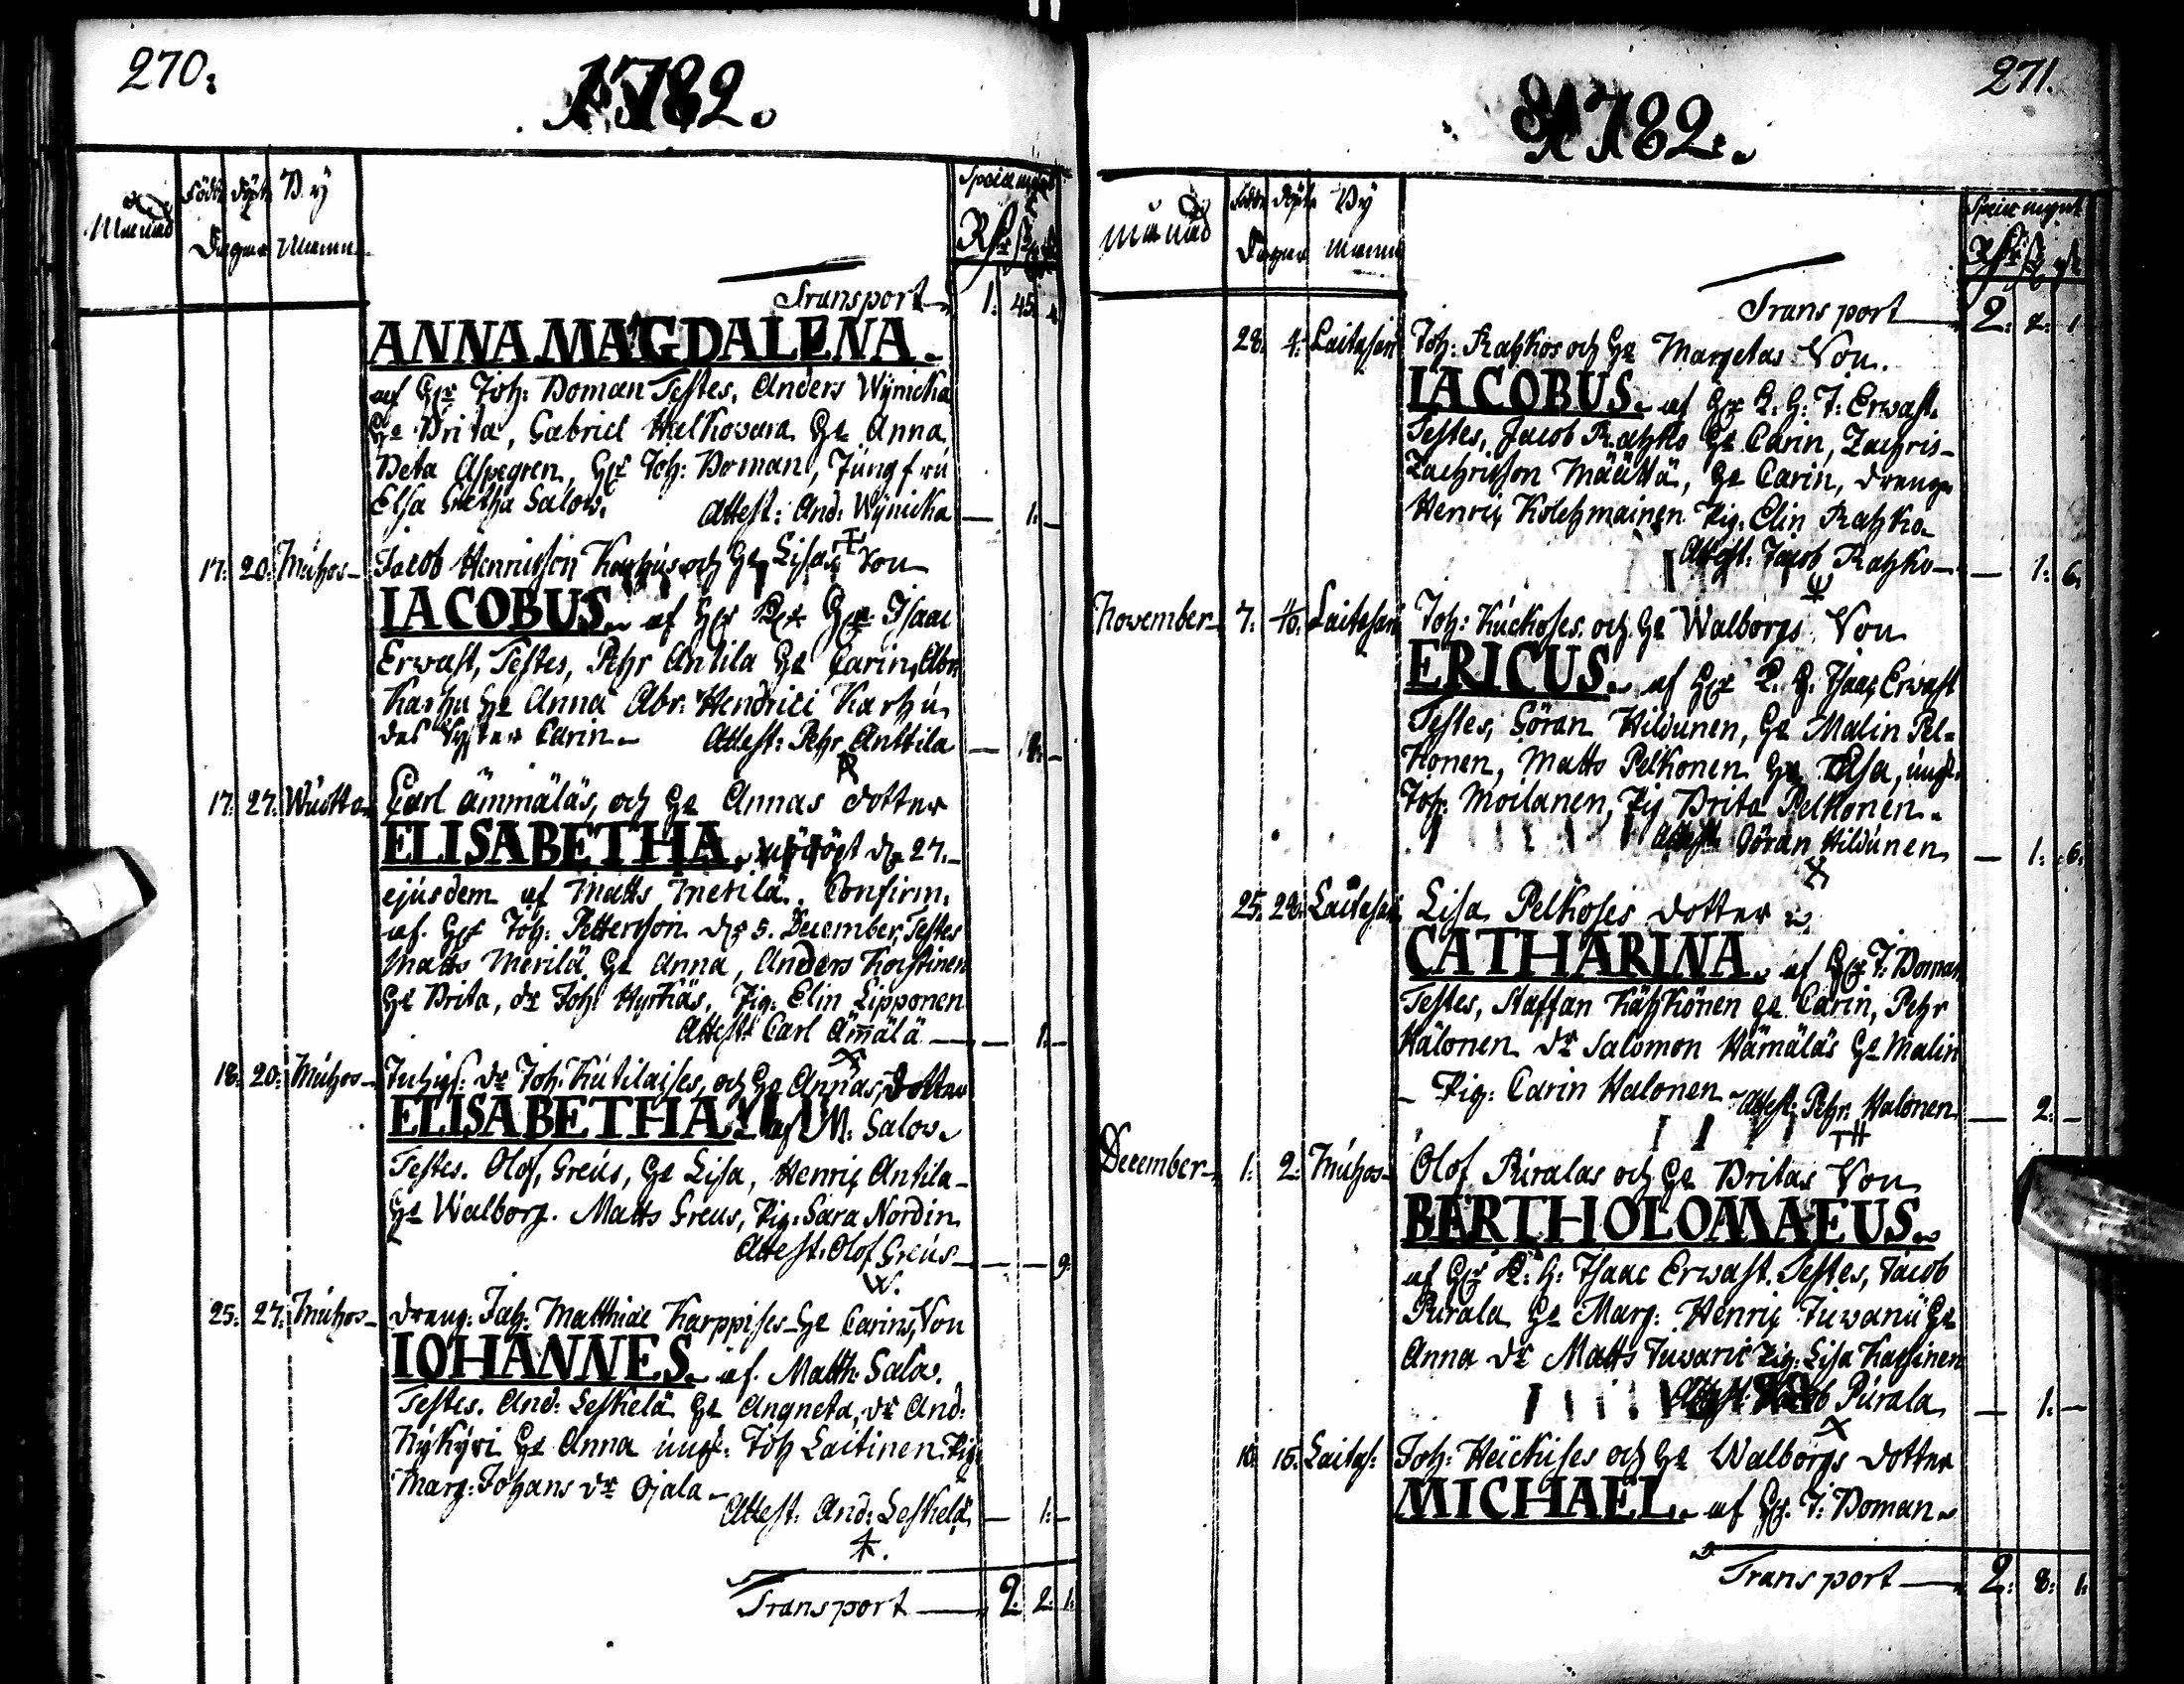 270:
1782.
Månad
Födde Döpte By
Dagar Namn
Speciemynt
Rdr ß
Transport 1: 45: 4
ANNA MAGDALENA.
af Hr Joh: Boman Testes, Anders Wÿnicka
He Brita, Gabriel Halkowara He Anna
Beta Aspegren, Hr Joh: Boman, Jungfru
Elsa Gretha Salov. Attest: And: Wÿnicka — 1: —
17: 20: Muhos Jacob Henricsson Karhus och He Lisas Son
IACOBUS. af Hr Isaac
Erwast, Testes, Pehr Antila He Carin, Abr:
Karhu He Anna Abr: Hendrici Karhu
des Syster Carin. Attest: Pehr Anttila
17: 27: Wuotto Carl ämmäläs, och He Annas dotter
ELISABETHA, nöddöpt d. 27.
ejusdem af Matts Merilä. Confirm:
af Hr Joh: Pettersson d. 5. December, Testes
Matts Merilä He Anna, Anders Korstinen
He Brita, dr Joh: Hyrkäs, Pig: Elin Lipponen
Attest: Carl Ämälä — 1: —
18: 20: Muhos Inhys: dr Joh: Kutilaises, och He Annas, Dotter
ELISABETHA. af M: Salov.
Testes. Olof Greus, He Lisa, Henric Antila
He Walborg. Matts Greus, Pig: Sara Nordin
Attest: Olof Greus — — 9:
25: 27: Muhos dreng: Joh: Matthiae Karppises He Carins, Son
IOHANNES. af Matth: Salov.
Testes. And: Leskelä He Angneta, dr And:
Nÿkÿri He Anna ungk: Joh Laitinen Pig:
Marg: Johans dr Ojala
Attest: And: Leskelä — 1: —
Transport 2: 2: 1:
271.
1782.
Månad
Födde Döpte By
Dagar Namn
Speciemynt
Rdr ß
Transport 2: 2: 1
28: 4: Laitasari Joh: Rahkos och He Margetas Son.
IACOBUS. af Hr P: H: J: Erwast.
Testes, Jacob Rahko He Carin, Zachris
Zachrisson Määttä, He Carin, dreng
Henric Kolehmainen Pig: Elin Rahko
Attest: Jacob Rahko — 1: 6:
November 7: 10: Laitasari Joh: Kuckoses och He Walborgs Son
ERICUS. af Hr P. H. Isaac Erwast
Testes, Göran Hildunen, He Malin Pel-
konen, Matts Pelkonen He Elsa, ungk:
Joh: Moilanen, Pig Brita Pelkonen.
Attest: Göran Hildunen — 1: 6:
25: 29: Laitasari Lisa Pelkoses dotter
CATHARINA. af Hr J: Boman
Testes, Staffan Kähkönen He Carin, Pehr
Halonen dr Salomon Hämäläs He Malin
Pig: Carin Halonen Attest: Pehr Halonen — 2: —
December 1: 2: Muhos Olof Piralas och He Britas Son
BARTHOLOMAEUS.
af Hr P: H: Isaac Erwast. Testes, Jacob
Pirala He Marg: Henric Juwani He
Anna dr Matts Juwani Pig: Lisa Karhinen
Attest: Jacob Pirala — 1: —
10: 15: Laitas: Joh: Heickises och He Walborgs dotter
MICHAEL. af Hr. J: Boman
Transport 2: 8: 1: